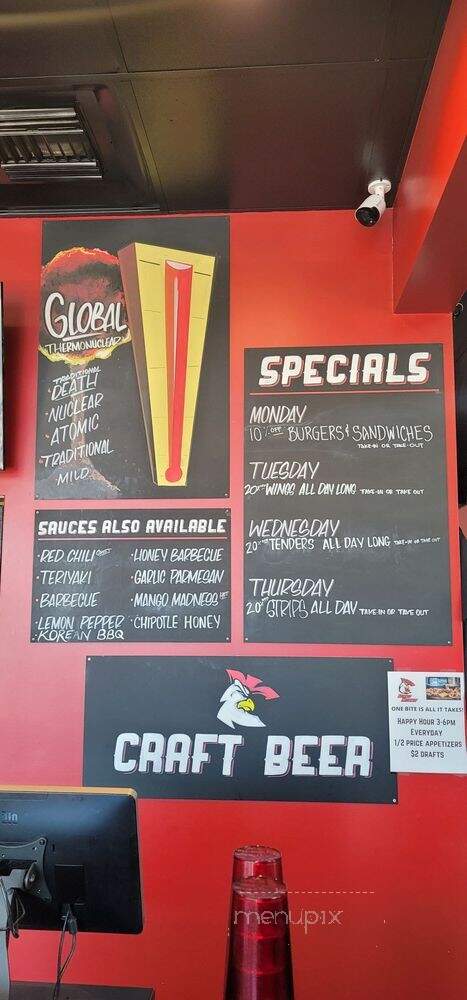 GLOBAL
THERMONUCLEAR
TRADITIONAL
DEATH
• NUCLEAR
• ATOMIC
• TRADITIONAL
MILD
SAUCES ALSO AVAILABLE
• RED CHILI
• TERIYAKI
• BARBECUE
• LEMON PEPPER
• KOREAN BBQ
• HONEY BARBECUE
• GARLIC PARMESAN
• MANGO MADNESS HOT
• CHIPOTLE HONEY
SPECIALS
MONDAY
10% OFF BURGERS & SANDWICHES
TAKE-IN OR TAKE-OUT
TUESDAY
WINGS ALL DAY LONG TAKE-IN OR TAKE OUT
WEDNESDAY
TENDERS ALL DAY LONG TAKE-IN OR TAKE OUT
THURSDAY
STRIPS ALL DAY TAKE-IN OR TAKE OUT
CRAFT BEER
ONE BITE IS ALL IT TAKES!
HAPPY HOUR 3-6PM
EVERYDAY
1/2 PRICE APPETIZERS
$2 DRAFTS
menupix